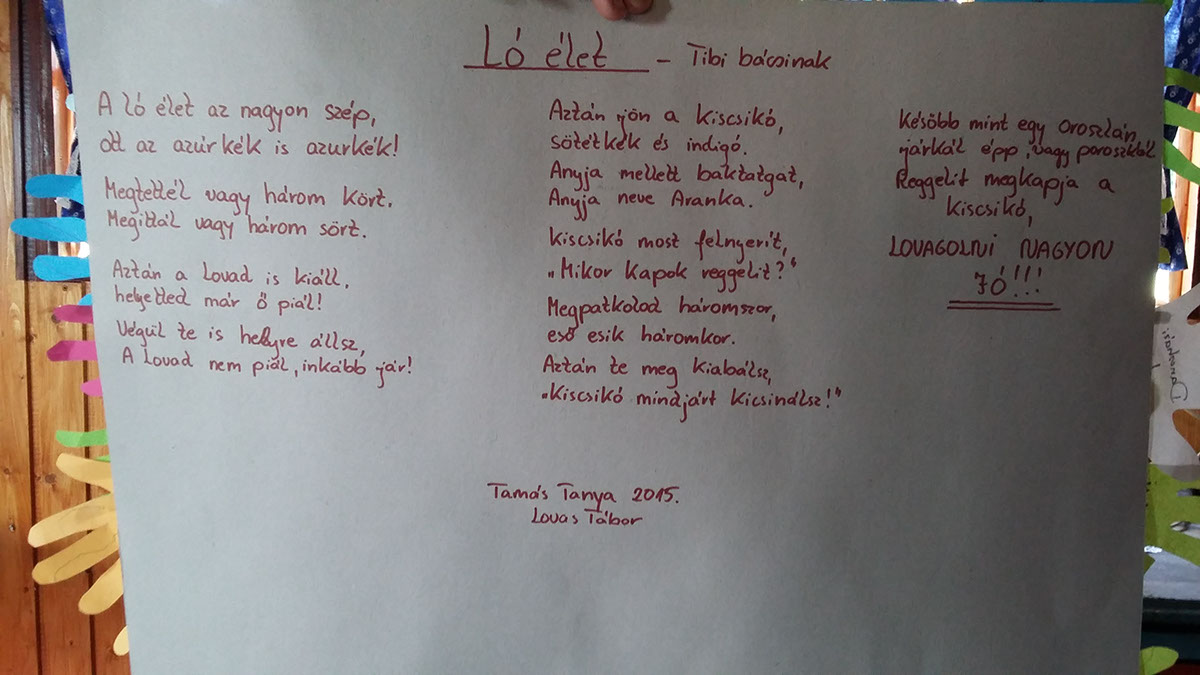 Ló élet - Tibi bácsinak
A ló élet az nagyon szép,
ott az azúr kék is azurkék!
Megtettél vagy három kört.
Megittál vagy három sört.
Aztán a Lovad is kiáll,
helyetted már ő piál!
Végül te is helyre állsz,
A Lovad nem piál, inkább jár!
Aztán jön a kiscsikó,
sötétkék és indigó.
Anyja mellett baktatgat,
Anyja neve Aranka.
Kiscsikó most felnyerít,
„Mikor kapok reggelit?"
Megpatkolod háromszor,
eső esik háromkor.
Aztán te meg kiabálsz,
„Kiscsikó mindjárt kicsinálsz!"
Később mint egy oroszlán,
járkál épp, vagy poroszkál
Reggelit megkapja a
kiscsikó,
LOVAGOLNI NAGYON
JÓ!!!
Tamás Tanya 2015.
Lovas Tábor